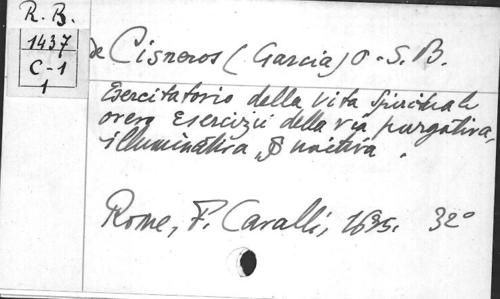 R. B.
1437
C-1
1
de Cisneros (Garcia) O. S. B.
Esercitatorio della vita spirituale
overo Esercizii della via purgativa,
illuminativa, & unitiva.
Rome, F. Cavalli, 32°